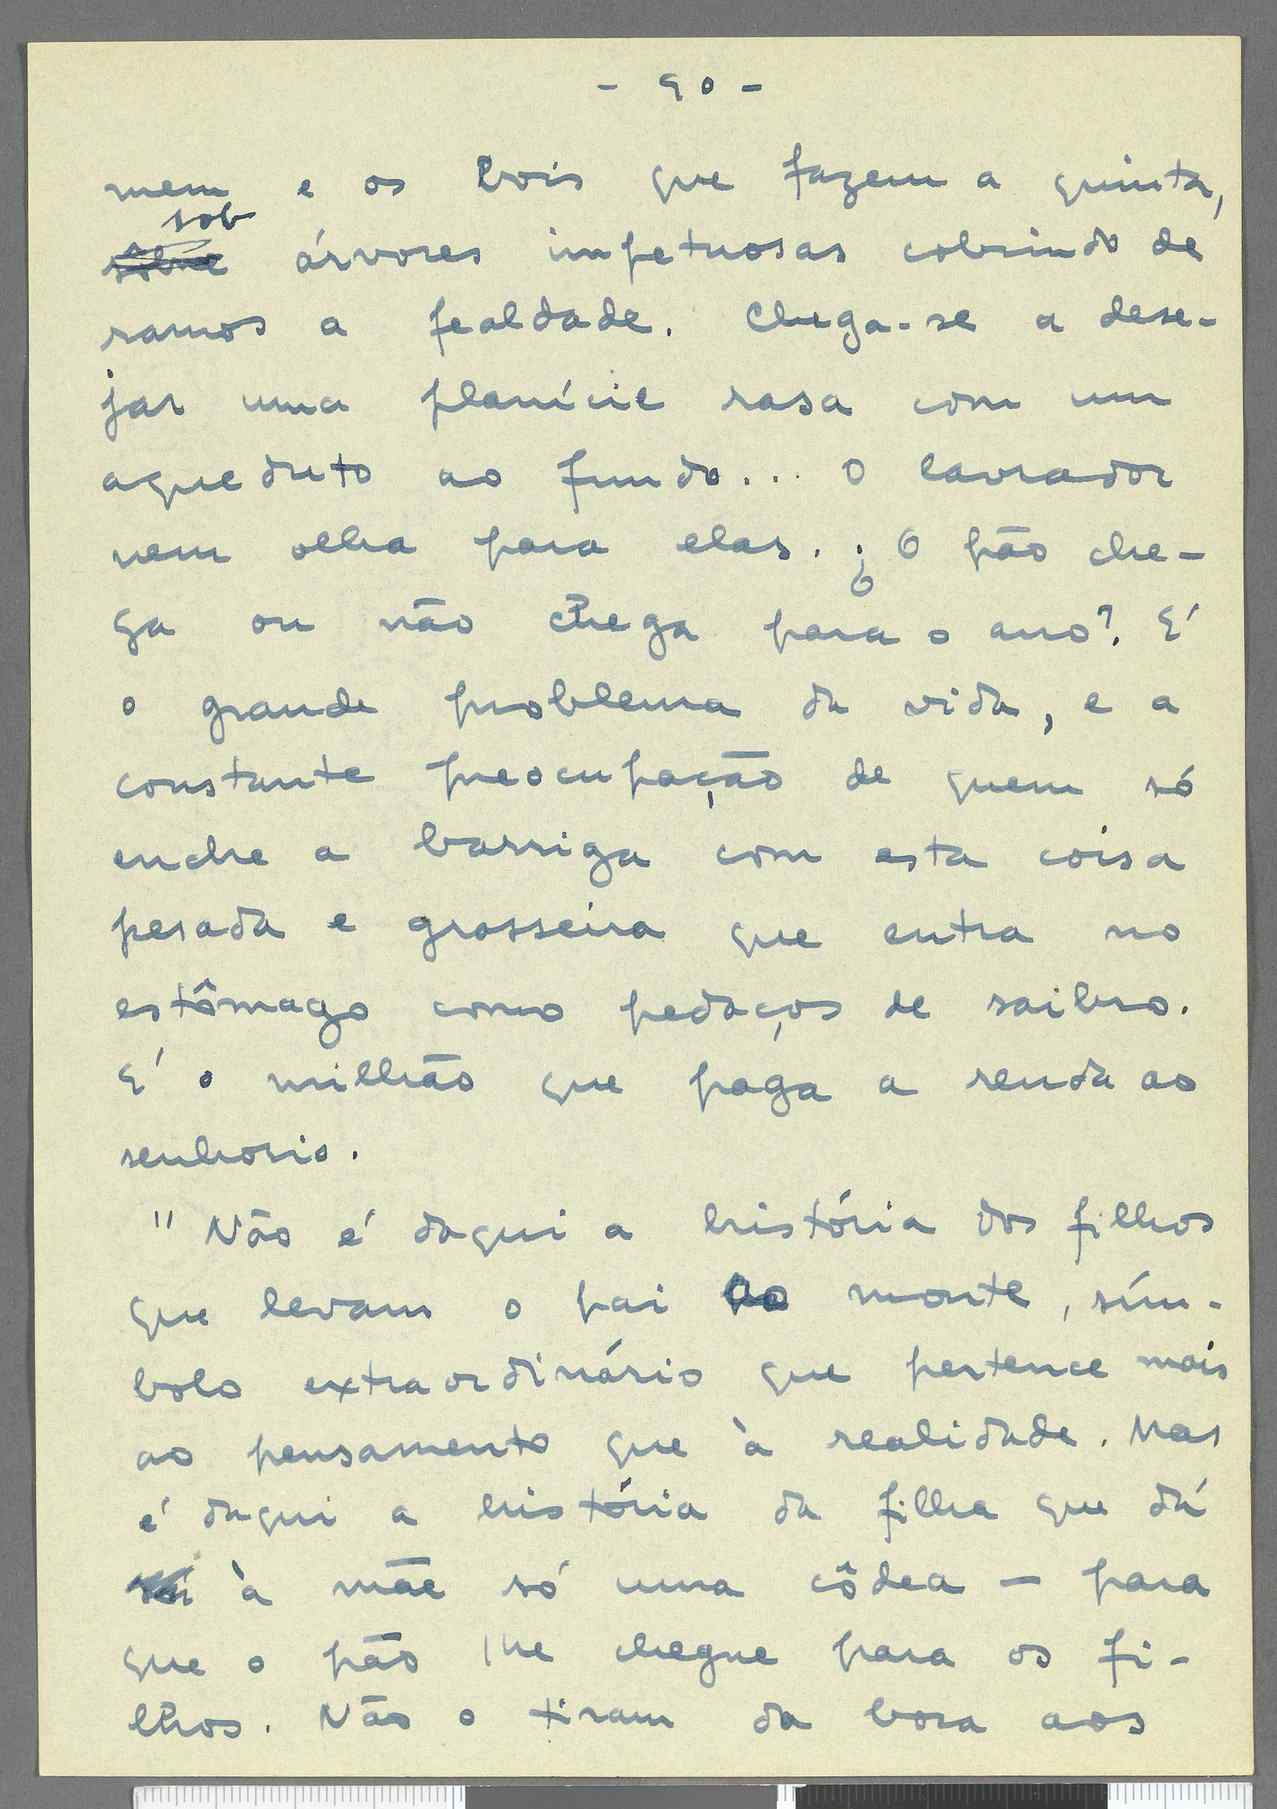 - 90 -
mem e os bois que fazem a quinta,
sob
sobre árvores impetuosas cobrindo de
ramos a fealdade. Chega-se a dese-
jar uma planície rasa com um
aqueduto ao fundo... O lavrador
nem olha para elas. ¿O pão che-
ga ou não chega para o ano? É
o grande problema da vida, e a
constante preocupação de quem só
enche a barriga com esta coisa
pesada e grosseira que entra no
estômago como pedaços de saibro.
É o milhão que paga a renda ao
senhorio.
" Não é daqui a história dos filhos
que levam o pai ao monte, sím-
bolo extraordinário que pertence mais
ao pensamento que à realidade. Mas
é daqui a história da filha que dá
à mãe só uma côdea — para
que o pão lhe chegue para os fi-
lhos. Não o tiram da boca aos